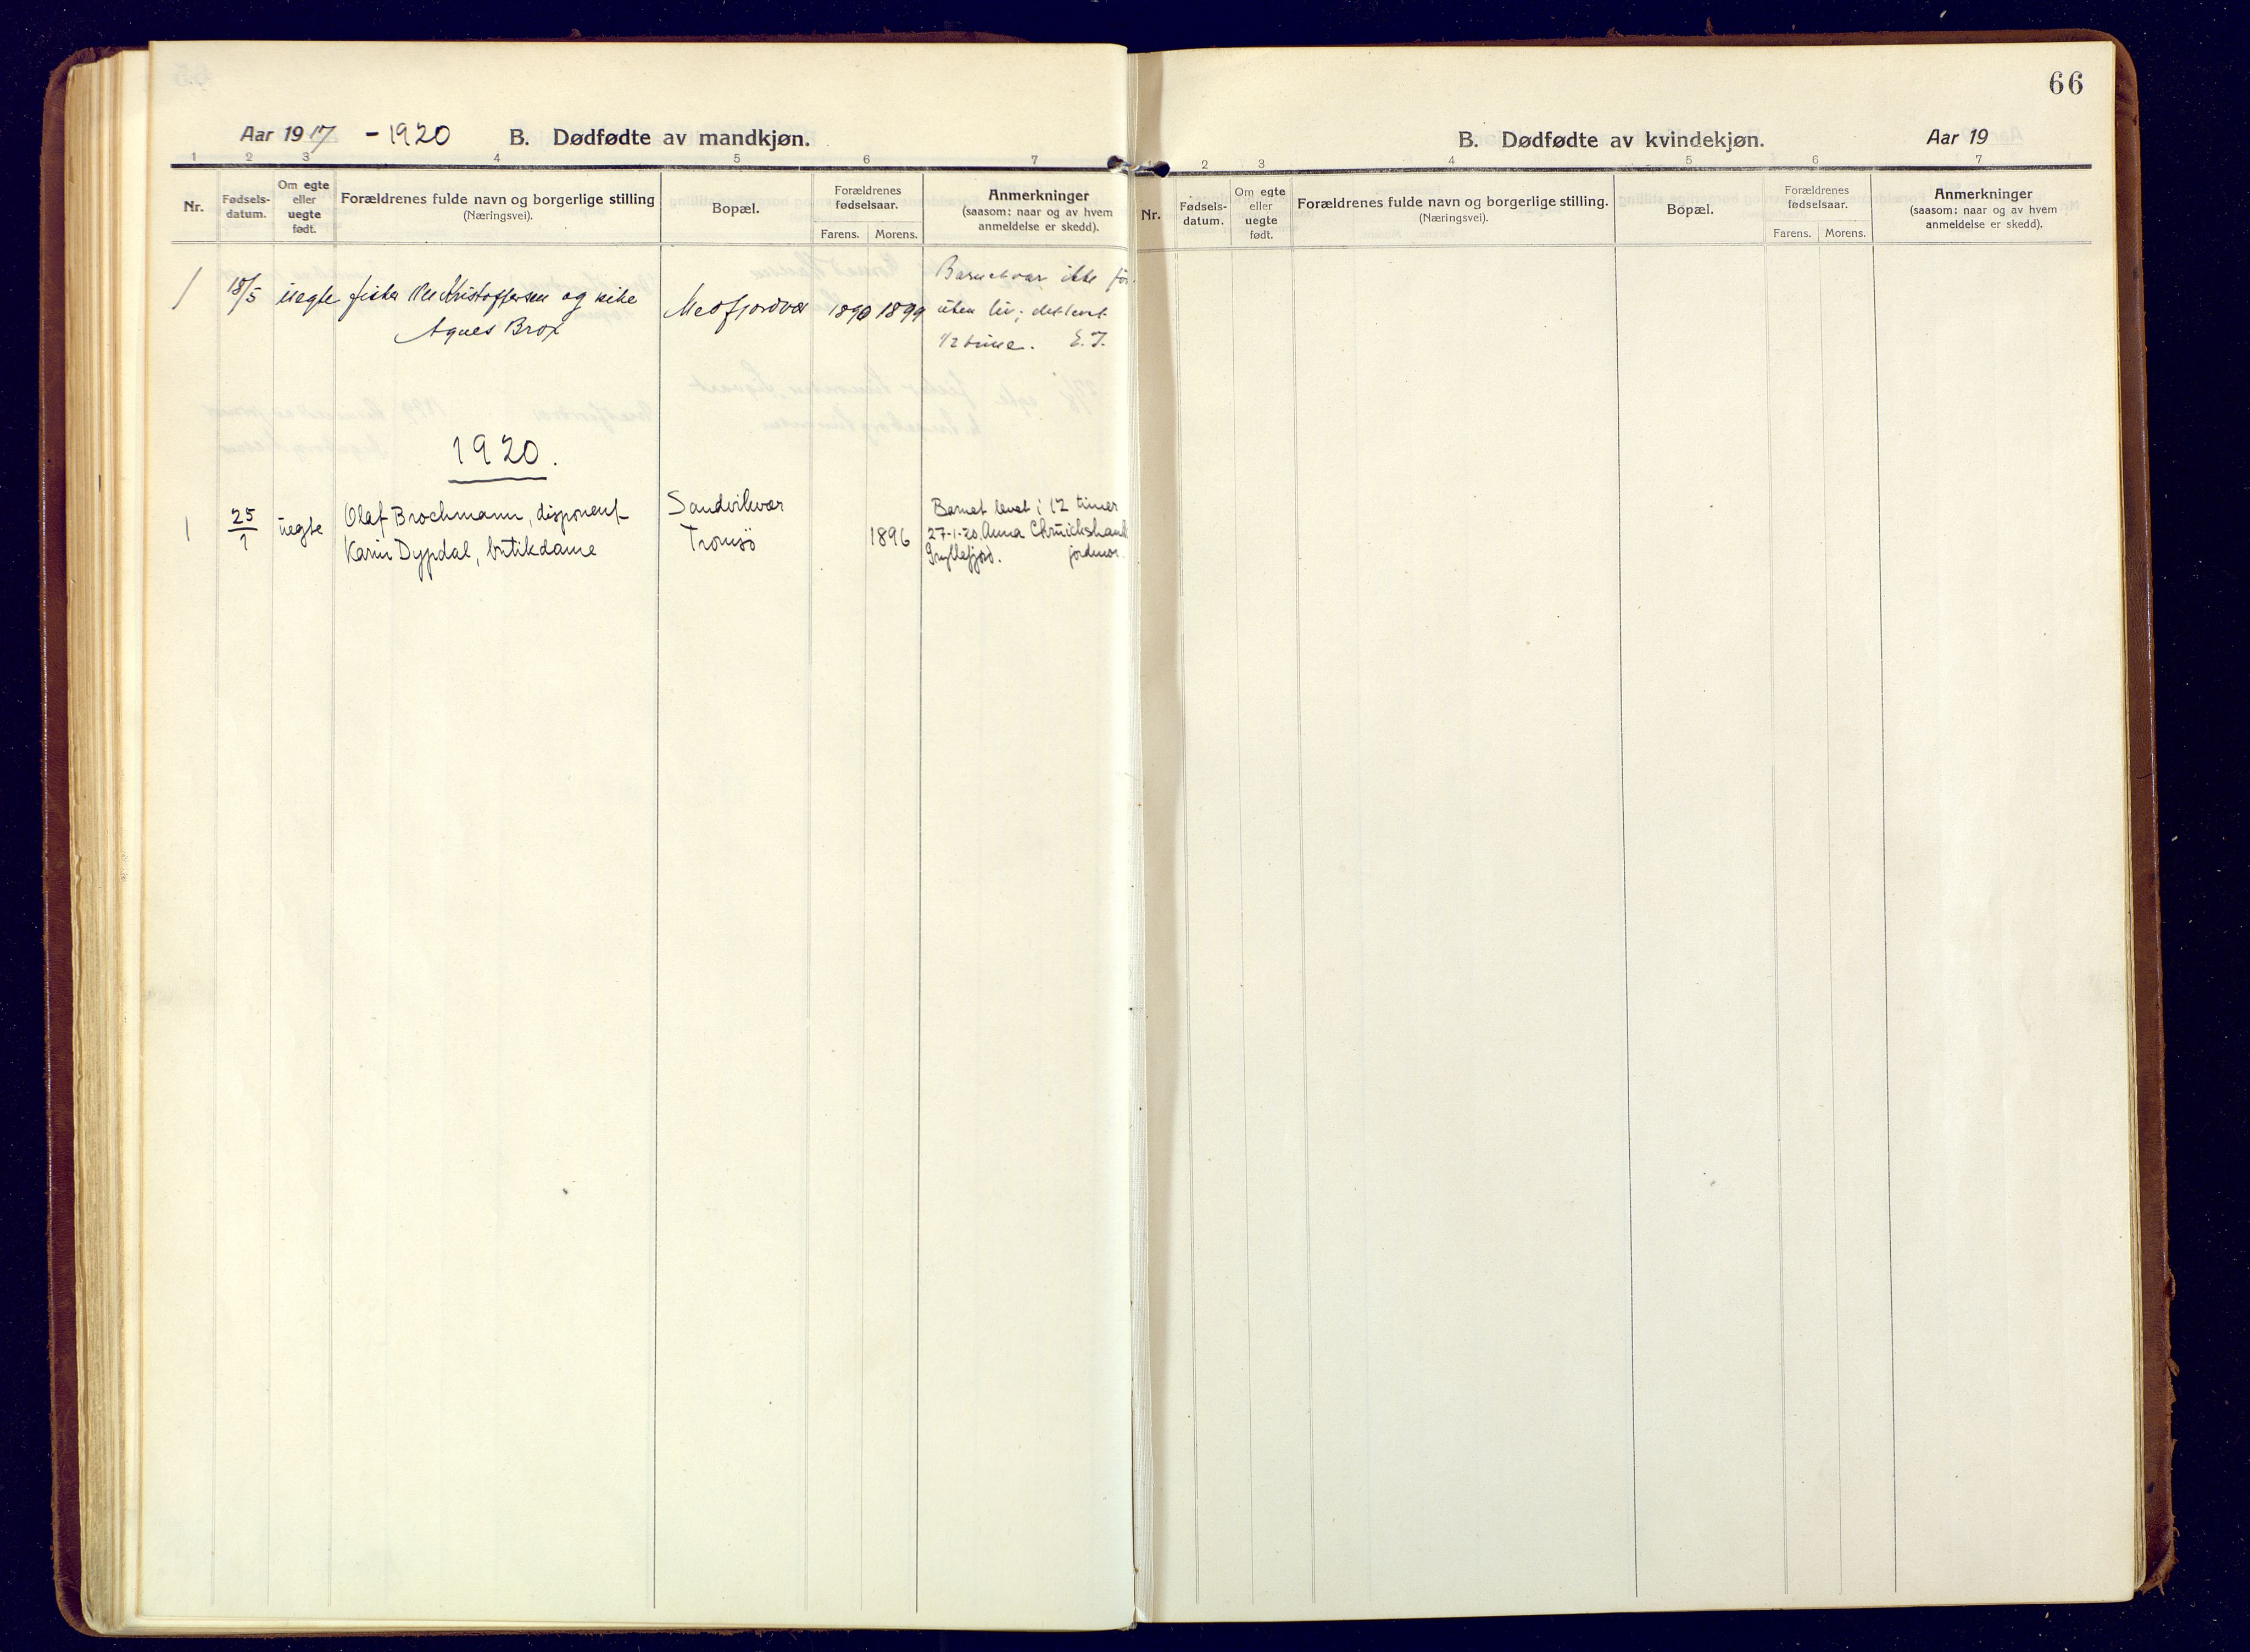 Aar 1917 - 1920 B. Dødfødte av mandkjøn.
1 2 3 4 5 6 7
Nr. Fødsels-datum. Om egte eller uegte født. Forældrenes fulde navn og borgerlige stilling (Næringsvei). Bopæl. Forældrenes fødselsaar. Farens. Morens. Anmerkninger (saasom: naar og av hvem anmeldelse er skedd).
1 18/5 uegte fisker Kristoffersen og pike Medfjordvær 1890 1899 Barnet var ikke
Agnes Brox uten liv; det levet
1/2 time. E. J.
1920.
1 25/1 uegte Olaf Brochmann, disponent Sandvikvær Barnet levet i 12 timer
Karin Dypdal, butikdame Tromsö 1896 27-1-20. Anna
Gryllefjord. jordmor.
66
B. Dødfødte av kvindekjøn. Aar 19
1 2 3 4 5 6 7
Nr. Fødsels-datum. Om egte eller uegte født. Forældrenes fulde navn og borgerlige stilling. (Næringsvei). Bopæl. Forældrenes fødselsaar. Farens. Morens. Anmerkninger (saasom: naar og av hvem anmeldelse er skedd).